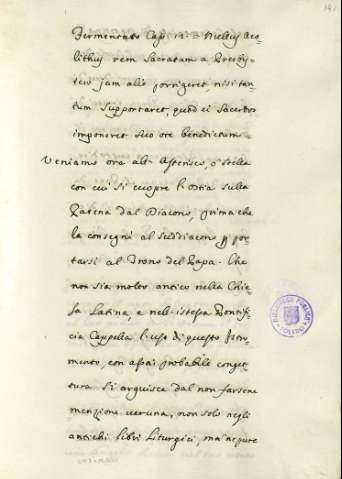 191
Fermentato Cap. 12. Nullus Aco-
lithus rem Sacratam a Presby-
tero jam alii porrigeret nisi tan-
tum supportaret, quod ei Sacerdos
imponeret suo ore benedictum.
Veniamo ora all'Asterisco, o stella
con cui si cuopre l'Ostia sulla
Patena dal Diacono, prima che
la consegni al Suddiacono p por-
tarsi al Trono del Papa. Che
non sia molto antico nella Chie-
sa Latina, e nell'istessa Pontifi-
cia Cappella l'uso di questo Istro-
mento, con assai probabile conget-
tura si arguisce dal non farsene
menzione veruna, non solo negli
antichi libri Liturgici, ma neppure
BIBLIOTECA PUBLICA
TOLEDO